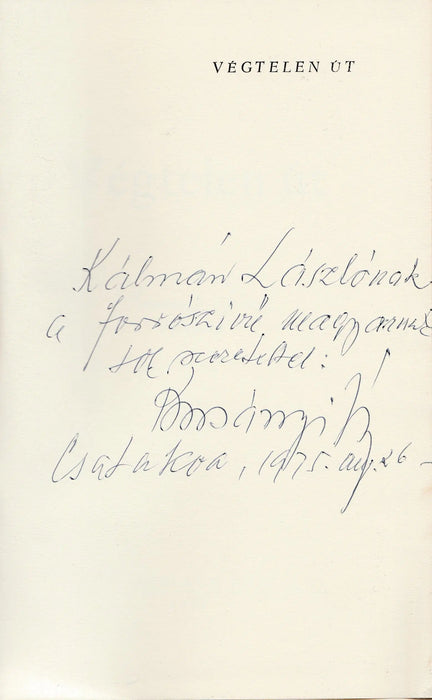 VÉGTELEN ÚT
Kálmán Lászlónak
a forrószívű magyarnak
sok szeretettel:
Csatakoa, 1975. aug. 26